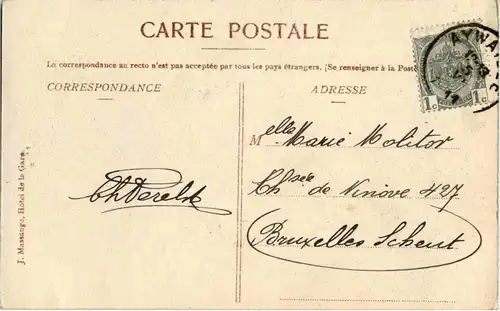 CARTE POSTALE
La correspondance au recto n'est pas acceptée par tous les pays étrangers. (Se renseigner à la Poste
CORRESPONDANCE
ADRESSE
Melle Marie Molitor
Chsée de Ninove 427
Bruxelles Scheut
J. Massange, Hôtel de la Gare.
1c 1c
AYWA